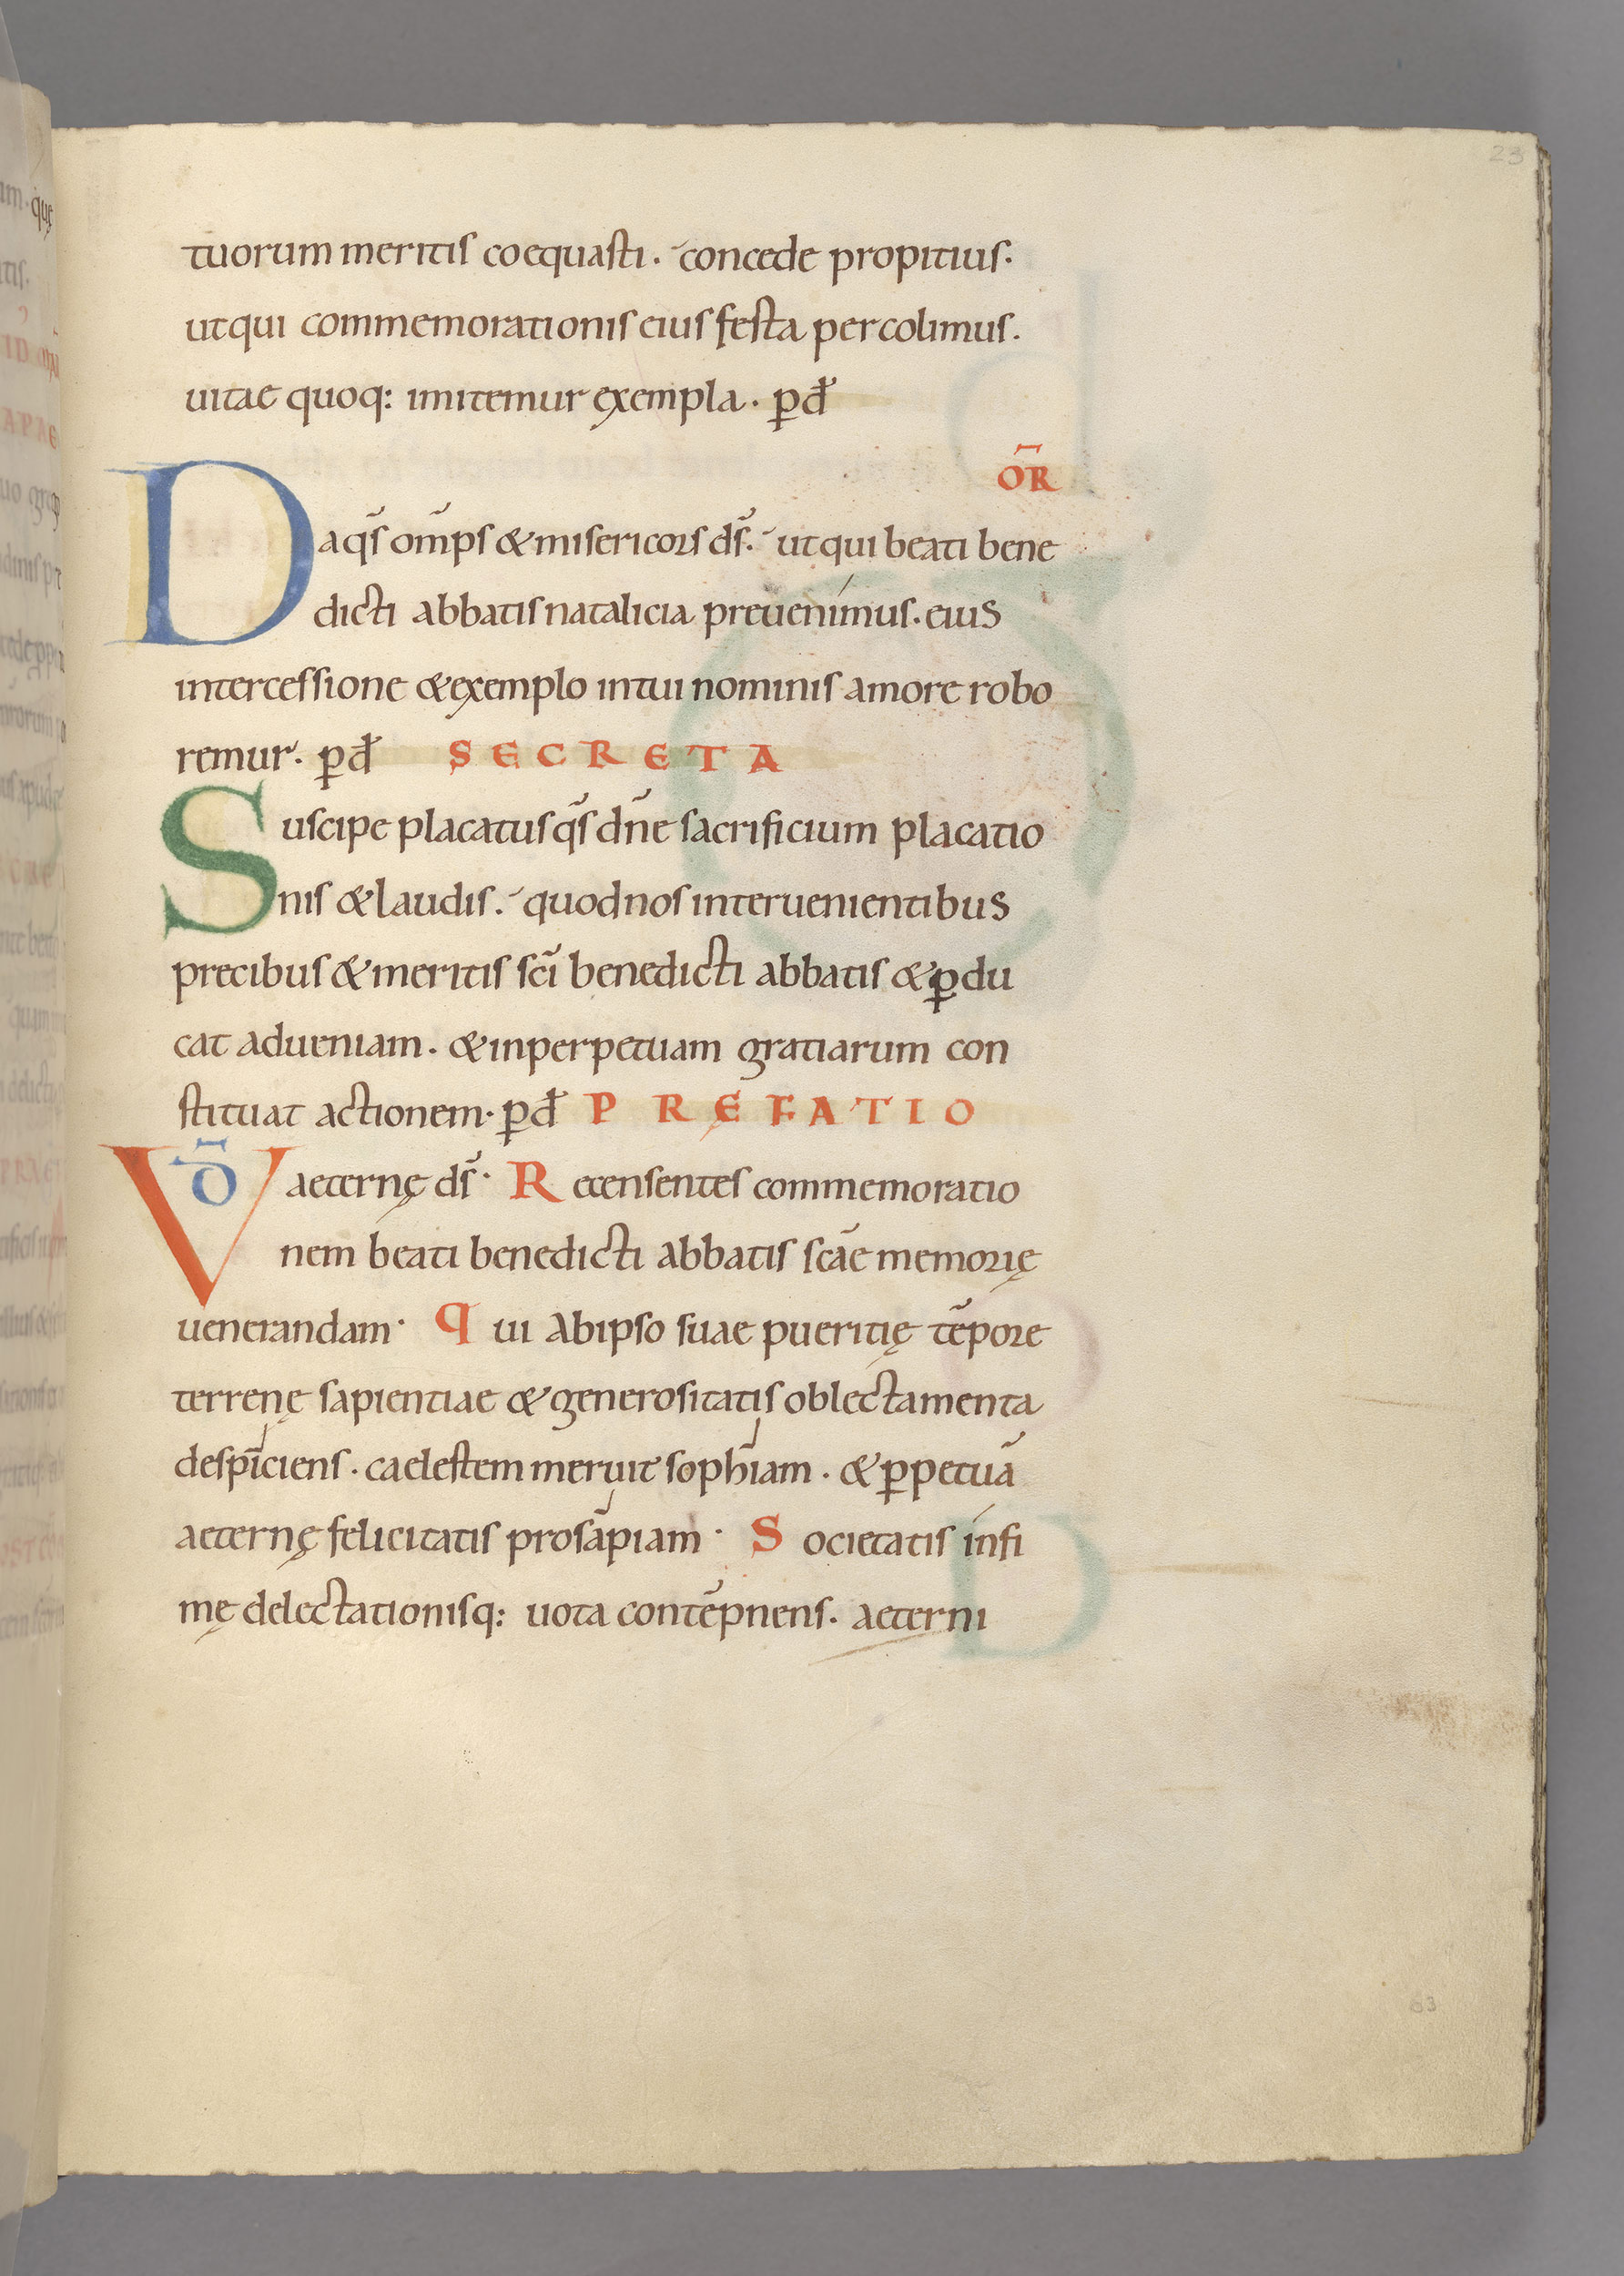 23
tuorum meritis coequasti. concede propitius.
ut qui commemorationis eius festa percolimus.
uitae quoq: imitemur exempla. ꝑ dꝉ
OR̄
Da qs̄ om̄ps & misericors ds̄. ut qui beati bene
dicti abbatis natalicia preuenimus. eius
intercessione & exemplo in tui nominis amore robo
remur. ꝑ dꝉ SECRETA
Suscipe placatus qs̄ dn̄e sacrificium placatio
nis & laudis. quod nos interuenientibus
precibus & meritis sc̄i benedicti abbatis & ꝑdu
cat ad ueniam. & in perpetuam gratiarum con
stituat actionem. ꝑ dꝉ PRĘFATIO
VD̄ aeternę ds̄. Recensentes commemoratio
nem beati benedicti abbatis sc̄ae memorię
uenerandam. Qui ab ipso suae pueritię tēpore
terrenę sapientiae & generositatis oblectamenta
despiciens. caelestem meruit sophiam. & ꝑpetuā
aeternę felicitatis prosapiam. Societatis infi
mę delectationisq: uota contēpnens. aeterni